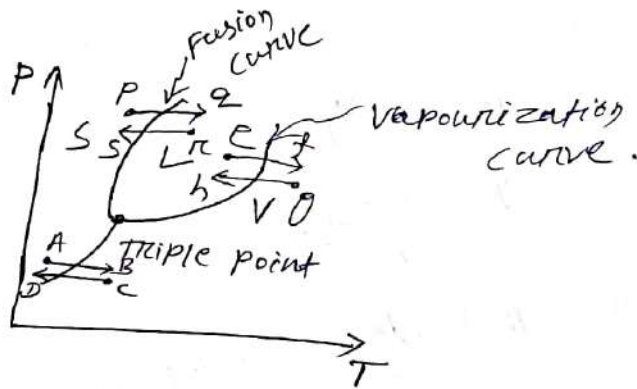 Fusion
curve
P
P q
S S L r e f
vapourization
curve.
h
V
Triple point
A
B
D C
T